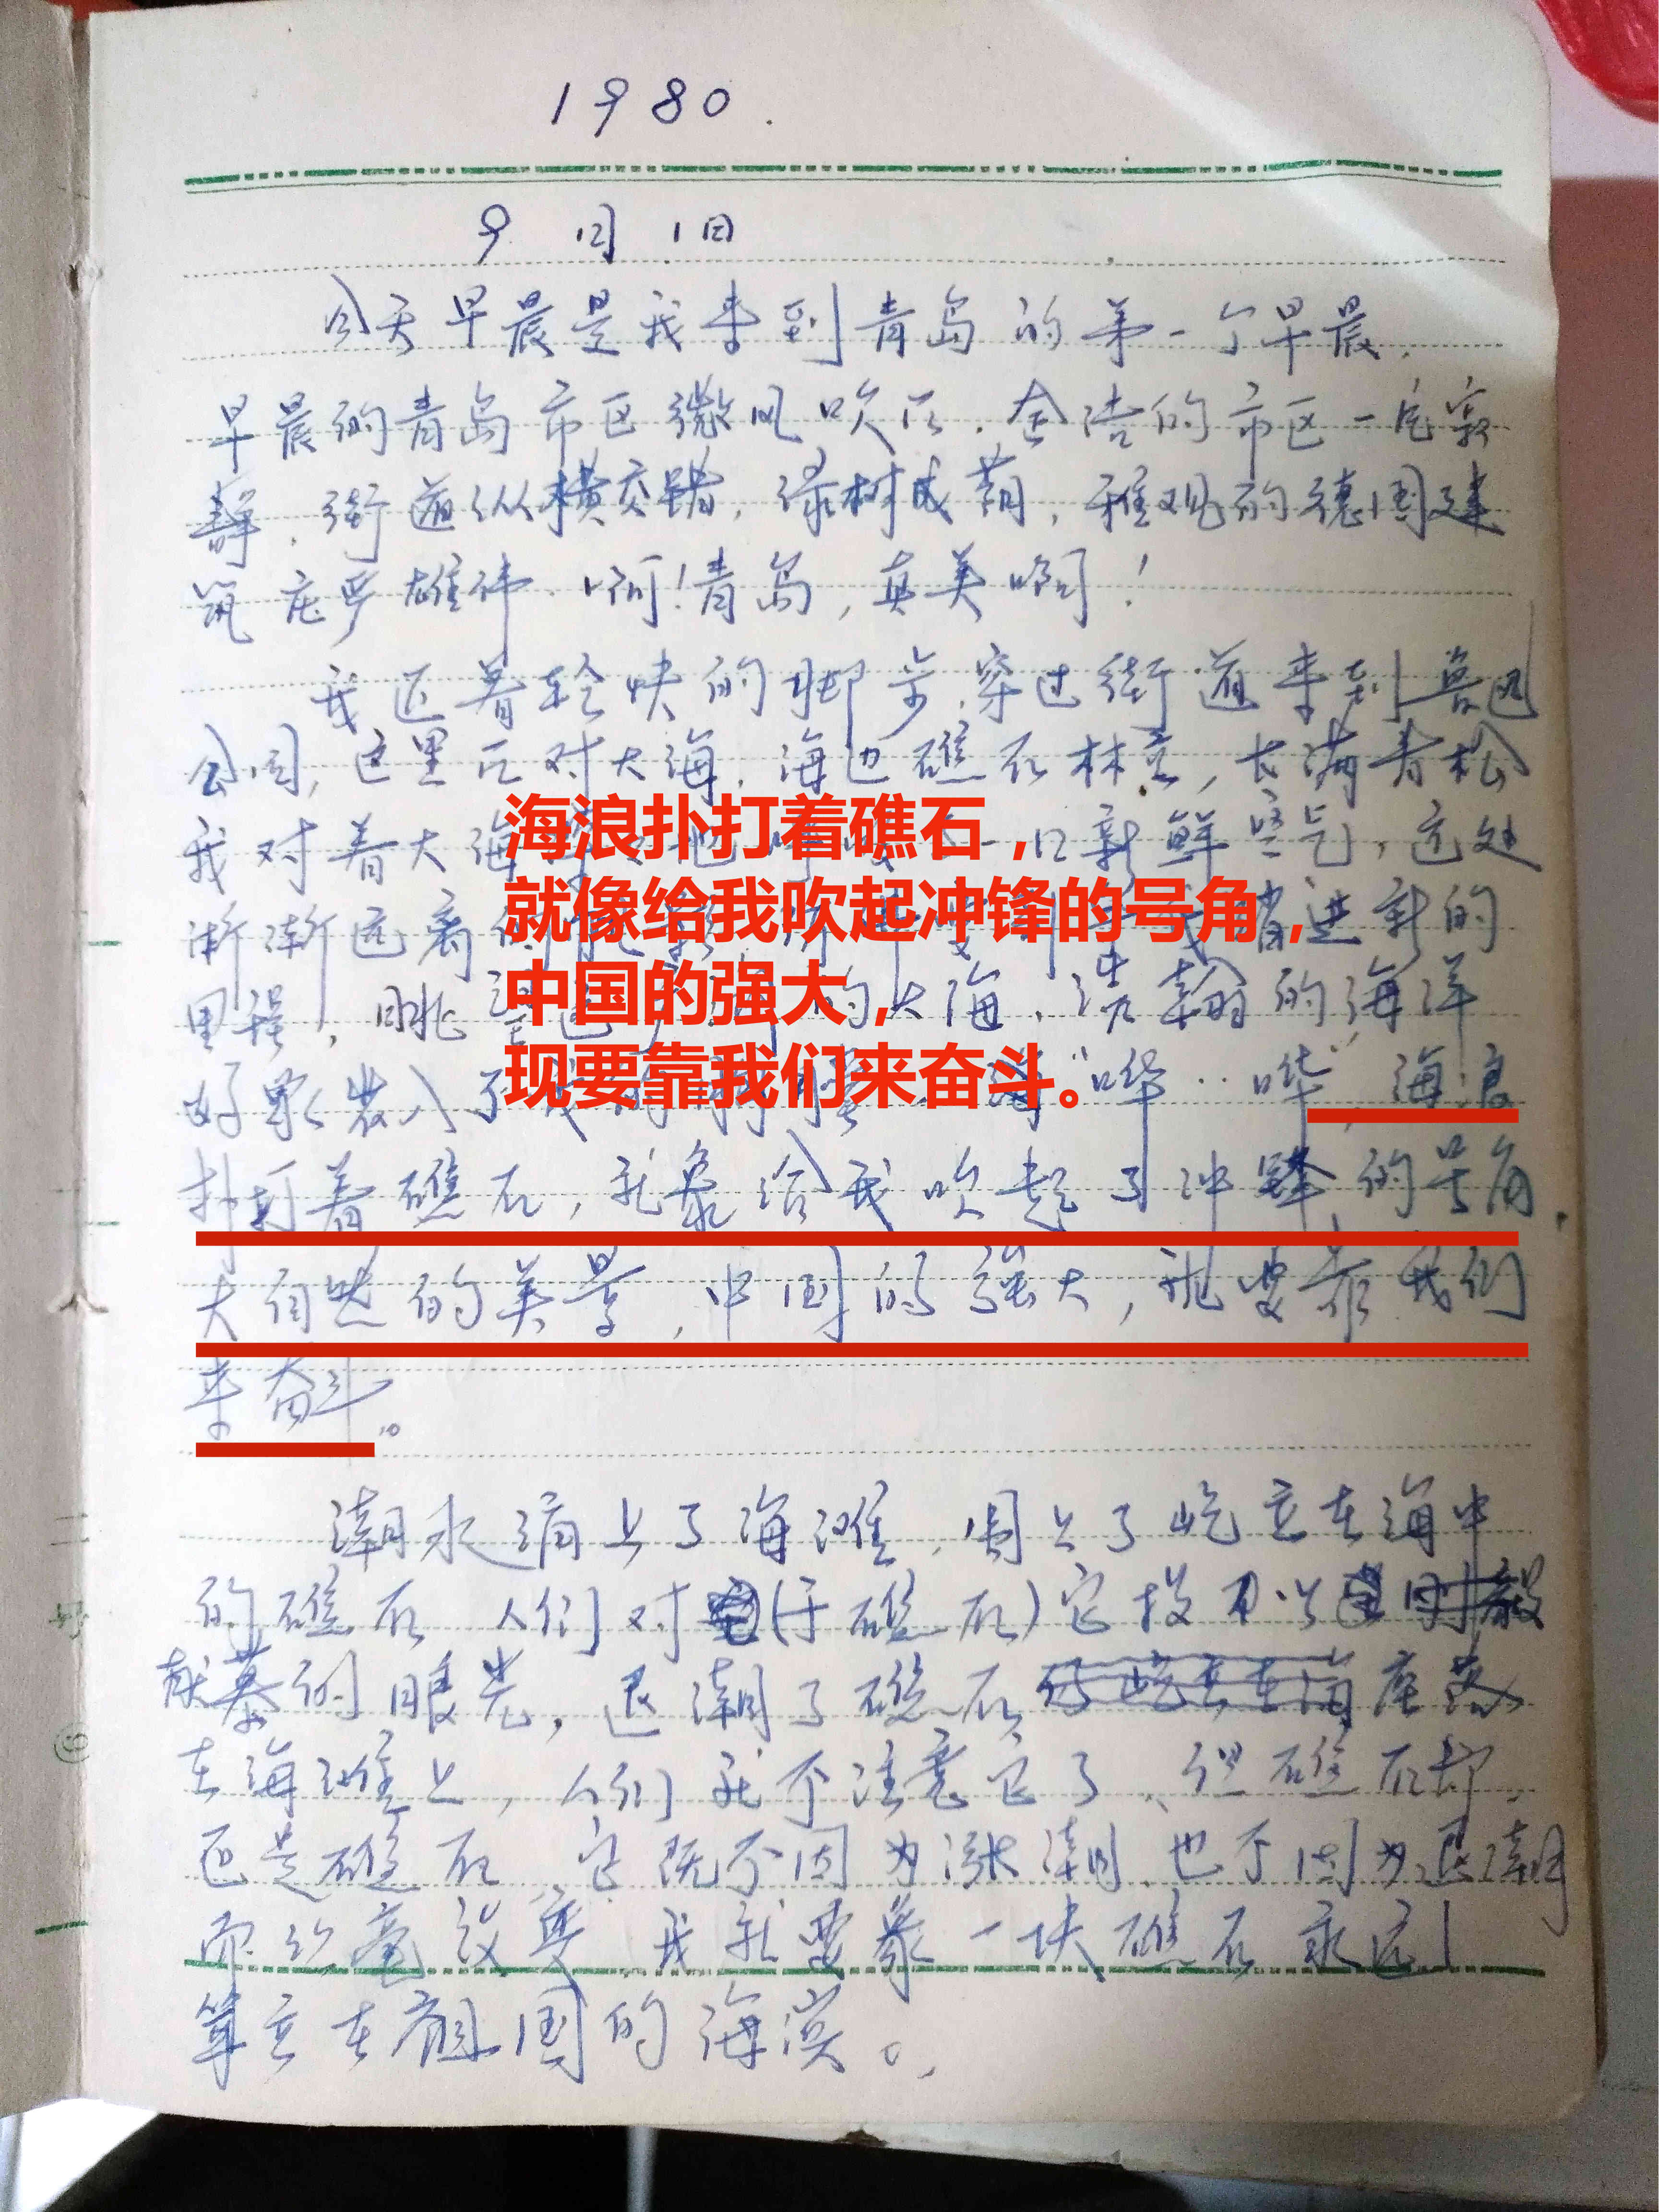 1980.
9月1日
今天早晨是我来到青岛的第一个早晨,
早晨的青岛市区微风吹
的市区一片寂
静,街道纵横交错,绿树成荫,雅观的德国建
筑庄严雄伟.啊!青岛,真美啊!
我迈着轻快的脚步,穿过街道来到鲁迅
公园,这里面对大海,海边礁石林立,长满青松
我对着大海
口新鲜空气,远处
海浪扑打着礁石,
渐渐远离
进新的
就像给我吹起冲锋的号角,
里程,眺
的大海,浩瀚的海洋
中国的强大,
好象装入了我的
"哗··哗",海浪
现要靠我们来奋斗。
扑打着礁石,就象给我吹起了冲锋的号角.
大自然的美景,中国的强大,就要靠我们
来奋斗。
潮水涌上了海滩,围上了屹立在海中
的礁石 人们对(于礁石)它投
慕的眼光,退潮了礁石座落
在海滩上,人们就不注意它了、但礁石却
还是礁石 它既不因为涨潮.也不因为退潮
而丝毫改变 我就要象一块礁石永远
耸立在祖国的海滨。